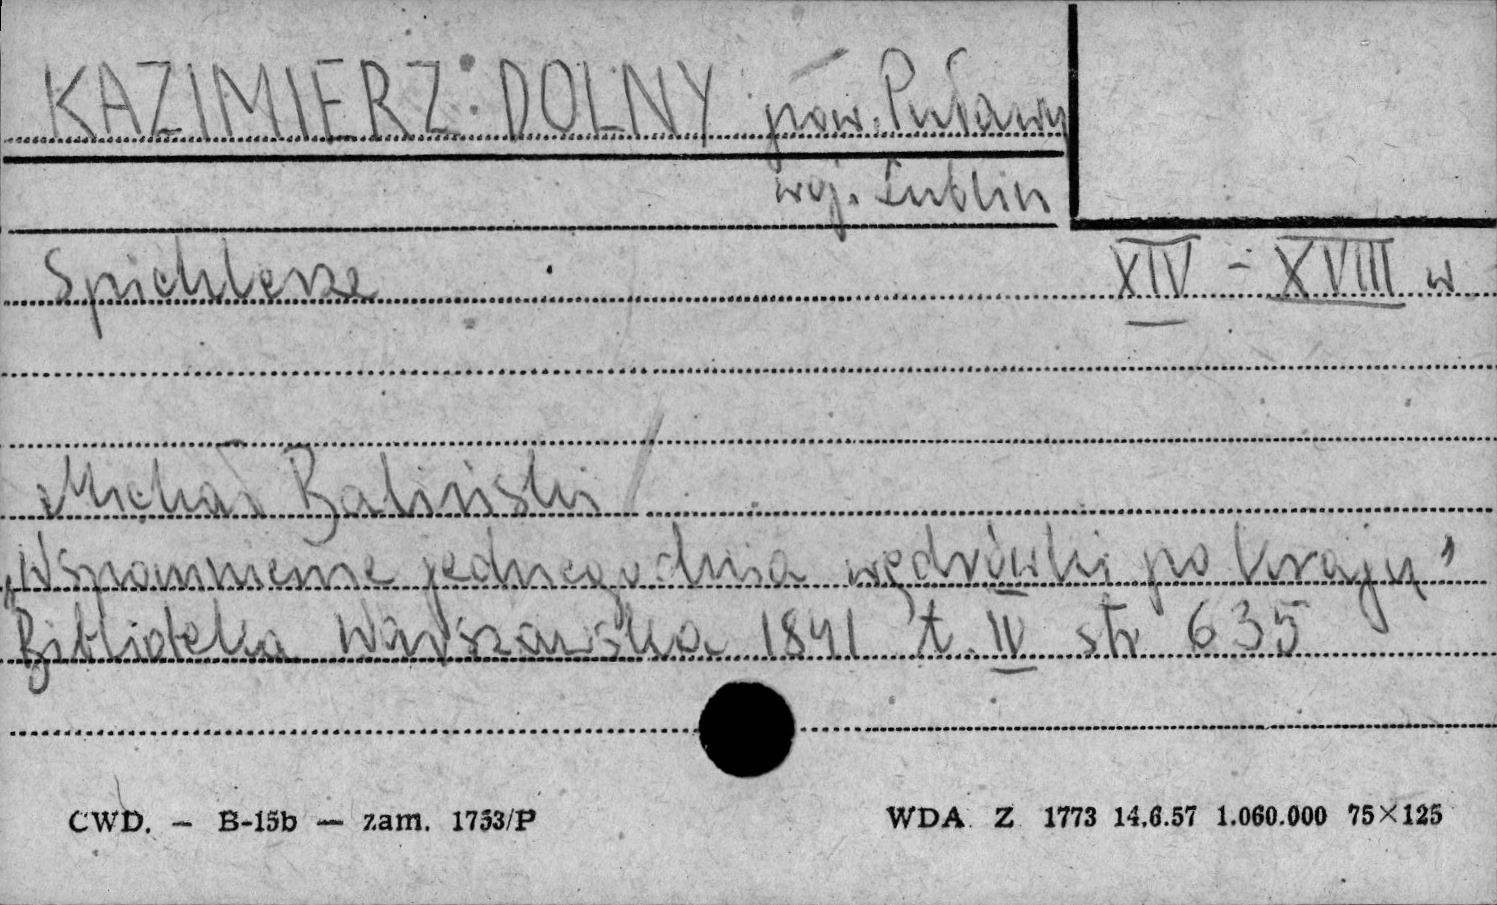 KAZIMIERZ DOLNY pow. Puławy
woj. Lublin
Spichlerze XIV - XVIII w
Michał Baliński
„Wspomnienie jednego dnia wędrówki po kraju"
Biblioteka Warszawska 1841 t. IV str 635
CWD. — B-15b — zam. 1753/P WDA Z 1773 14.6.57 1.060.000 75×125